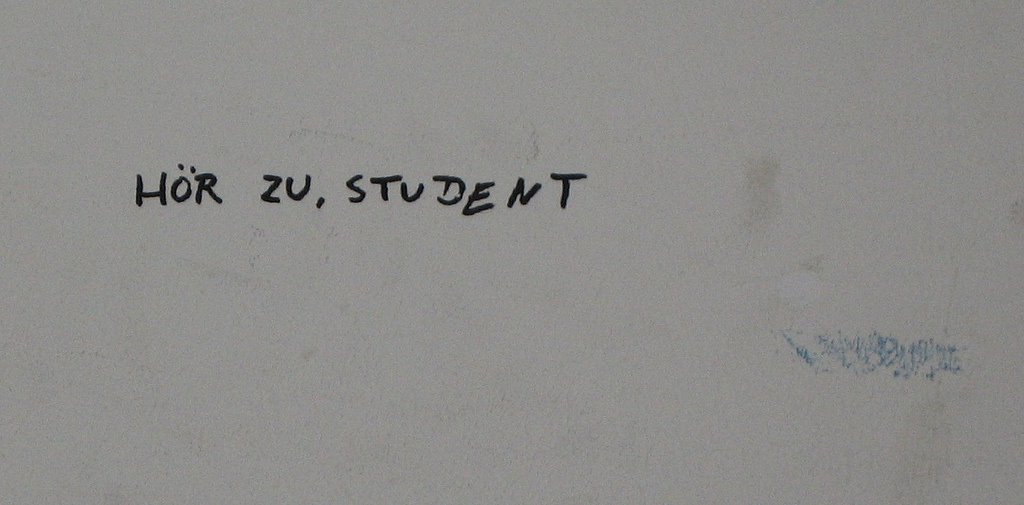 HÖR ZU, STUDENT